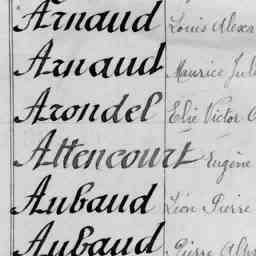 Arnaud Louis Alexa
Arnaud Maurice Juli
Arondel Elie Victor
Attencourt Eugène
Aubaud Léon Pierre
Aubaud Pierre